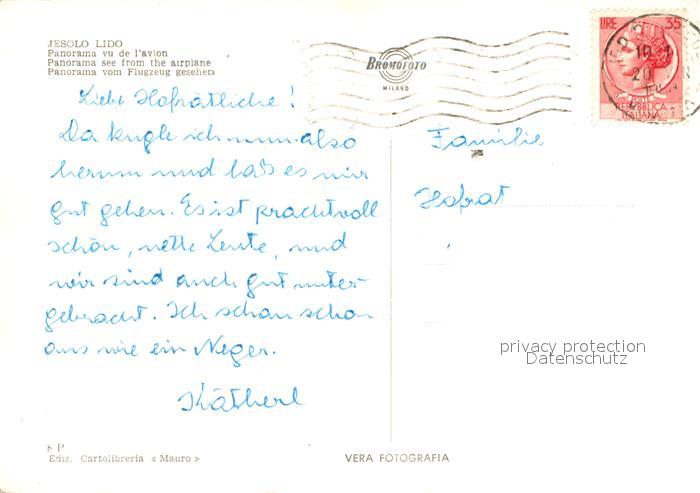 JESOLO LIDO
Panorama vu de l'avion
Panorama see from the airplane
Panorama vom Flugzeug gesehen
BROMOFOTO
MILANO
LIRE 35
POSTE
REPUBBLICA
ITALIANA
Liebe Hofrätliche!
Da kugle ich nun also
herum und laß es mir
gut gehen. Es ist prachtvoll
schön, nette Leute, und
wir sind auch gut unter-
gebracht. Ich schau schon
aus wie ein Neger.
Kätherl
Familie
Hofrat
privacy protection
Datenschutz
Ediz. Cartolibreria « Mauro »
VERA FOTOGRAFIA